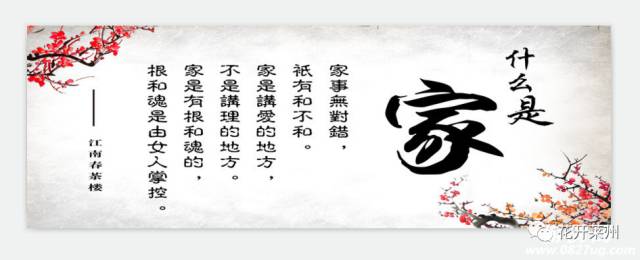 什么是
家
家事無對錯，
衹有和不和。
家是講愛的地方，
不是講理的地方。
家是有根和魂的，
根和魂是由女人掌控。
——江南春茶楼
花开莱州
www.0827ug.com